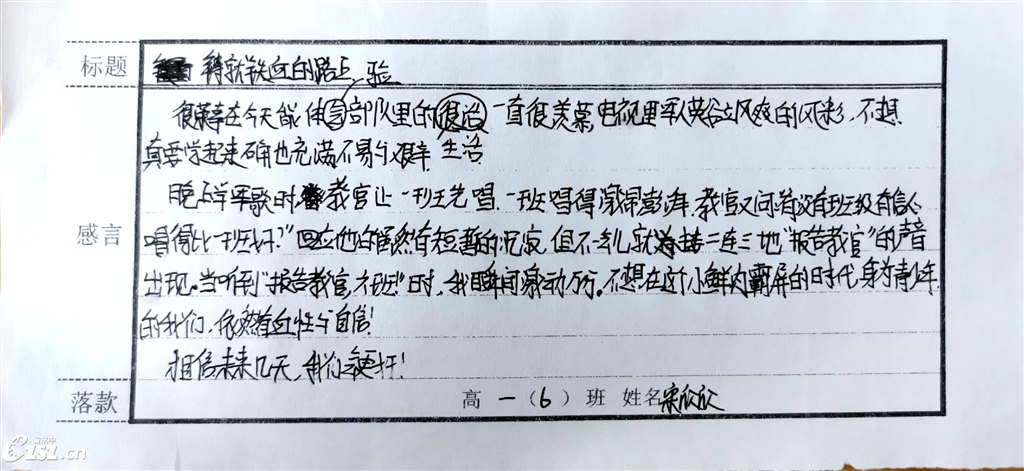 标题 铸就铁血的路上
验
很荣幸在今天能体会部队里的很活 一直很羡慕电视里军人英姿飒爽的风彩,不想
真要学起来确也充满不易与艰辛 生活
晚上学军歌时,教官让一班先唱.一班唱得激昂澎湃.教官又问:"有没有班级有信心
感言
唱得比一班好?"回应他的虽然有短暂的沉寂,但不一会儿就接二连三地"报告教官"的声音
出现。当听到"报告教官,六班"时,我瞬间激动万分。不想在这个小鲜肉霸屏的时代,身为青少年
的我们,依然有血性与自信!
相信未来几天,我们会更好!
落款 高一(6)班 姓名 宋欣欣
.cn